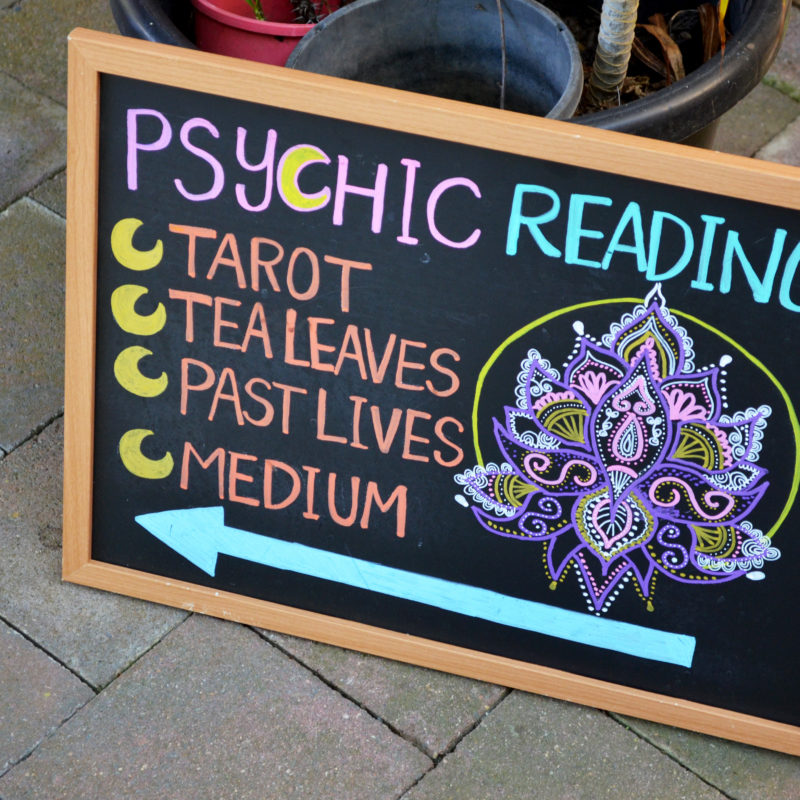 PSYCHIC READING
TAROT
TEA LEAVES
PAST LIVES
MEDIUM